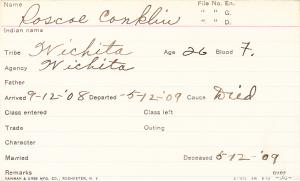 Name Roscoe Conklin File No. En.
" " G.
" " D.
Indian name
Tribe Wichita Age 26 Blood F.
Agency Wichita
Father
Arrived 9-12-'08 Departed -5-12-'09 Cause Died
Class entered Class left
Trade Outing
Character
Married Deceased 5-12-'09
Remarks
YAWMAN & ERBE MFG. CO., ROCHESTER, N. Y.